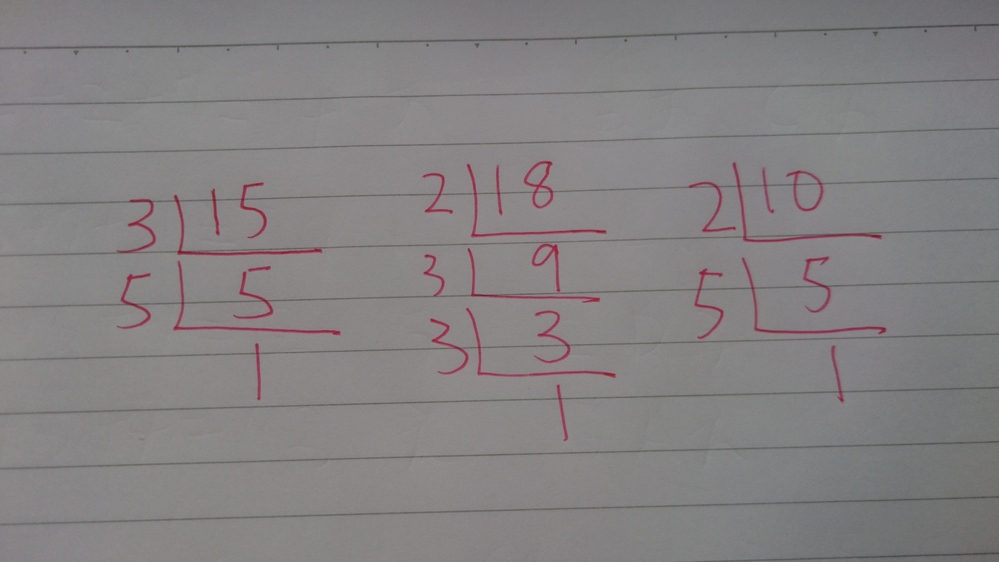 3 15
5 5
1
2 18
3 9
3 3
1
2 10
5 5
1